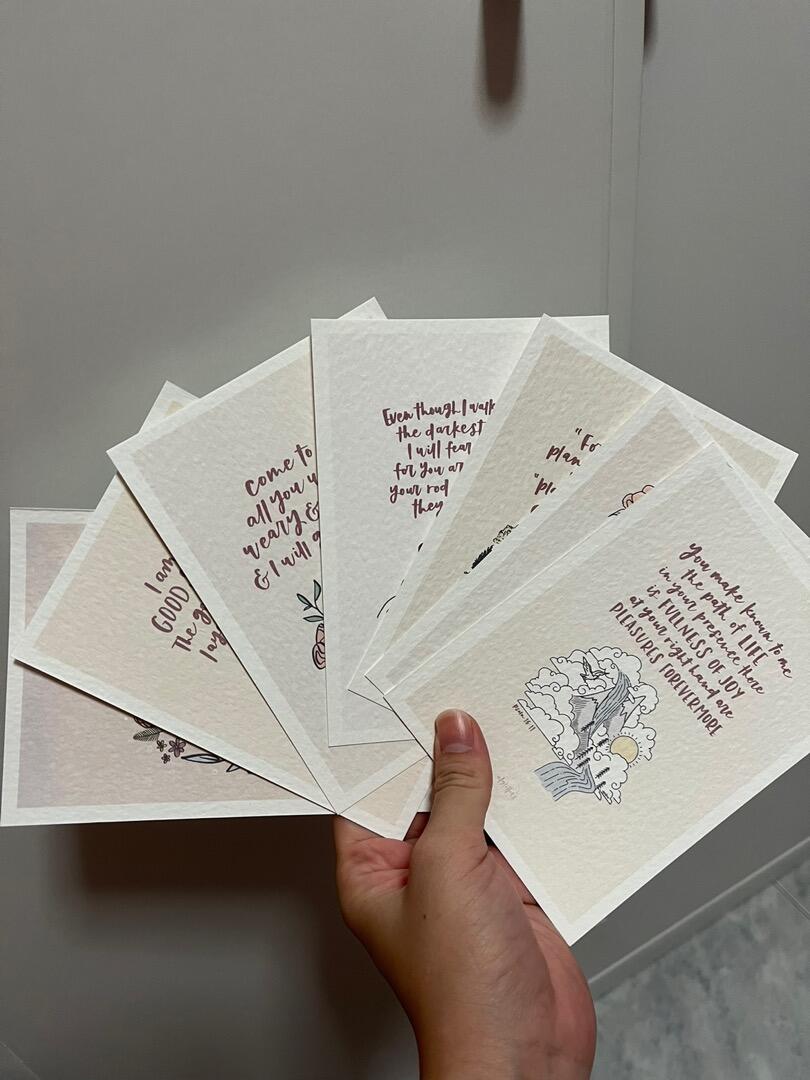 I am
GOOD
The
lay
come to
all you
weary &
& I will
Even though I walk
the darkest
I will fear
for you ar
your rod
they
"Fo
plan
"pl
You make known to me
the path of LIFE
in your presence there
is FULLNESS OF JOY
at your right hand are
PLEASURES FOREVERMORE
Psalm 16:11